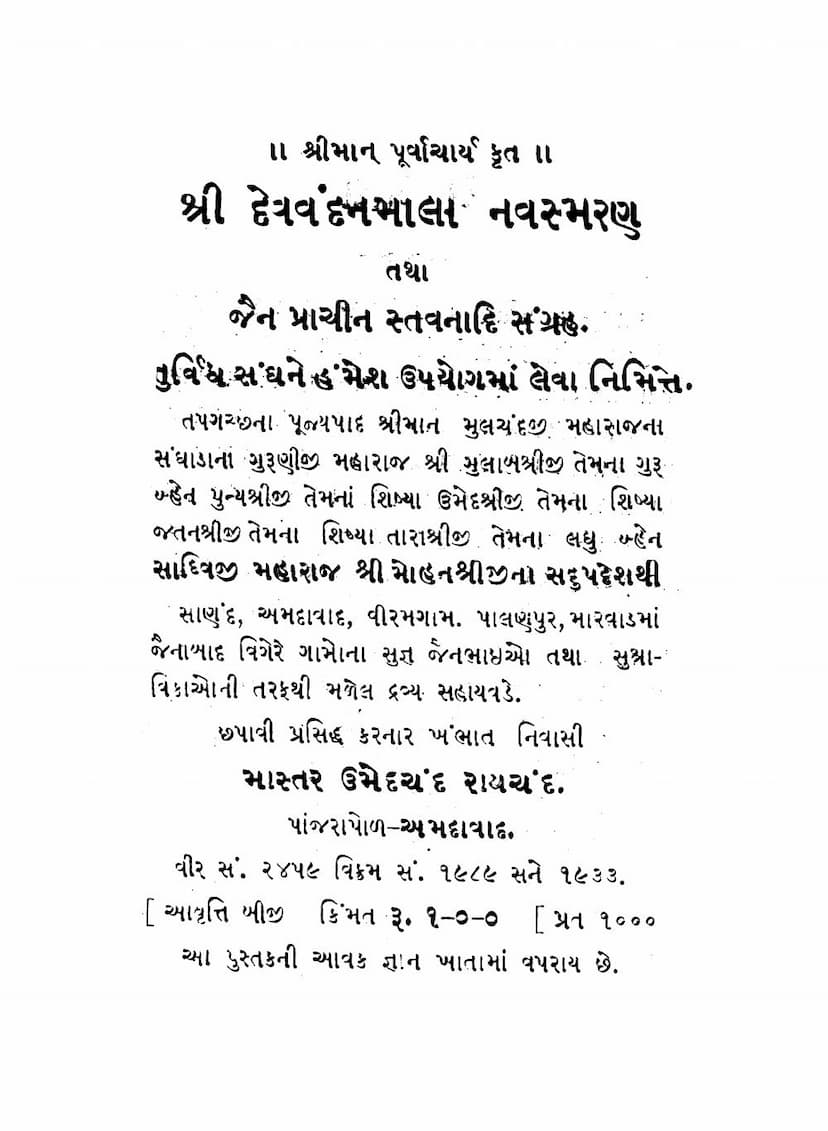 ॥ શ્રીમાન્ પૂર્વાચાર્ય કૃત ॥
શ્રી દેવવંદનમાલા નવસ્મરણ
તથા
જૈન પ્રાચીન સ્તવનાદિ સંગ્રહ.
તુર્વિધ સંઘને હંમેશ ઉપયોગમાં લેવા નિમિત્તે.
તપગચ્છના પૂજ્યપાદ શ્રીમાન મુલચંદજી મહારાજના
સંઘાડાના ગુરૂણીજી મહારાજ શ્રી ગુલાબશ્રીજી તેમના ગુરૂ
બ્હેન પુન્યશ્રીજી તેમનાં શિષ્યા ઉમેદશ્રીજી તેમના શિષ્યા
જતનશ્રીજી તેમના શિષ્યા તારાશ્રીજી તેમના લઘુ બ્હેન
સાધ્વિજી મહારાજ શ્રી મોહનશ્રીજીના સદુપદેશથી
સાણંદ, અમદાવાદ, વીરમગામ. પાલણપુર, મારવાડમાં
જૈનાબાદ વિગેરે ગામોના સુજ્ઞ જૈનભાઇઓ તથા સુશ્રા-
વિકાઓની તરફથી મળેલ દ્રવ્ય સહાયવડે.
છપાવી પ્રસિદ્ધ કરનાર ખંભાત નિવાસી
માસ્તર ઉમેદચંદ રાયચંદ.
પાંજરાપોળ–અમદાવાદ.
વીર સં. ૨૪૫૯ વિક્રમ સં. ૧૯૮૯ સને ૧૯૩૩.
[ આવૃત્તિ બીજી કિંમત રૂ. ૧-૦-૦ [ પ્રત ૧૦૦૦
આ પુસ્તકની આવક જ્ઞાન ખાતામાં વપરાય છે.